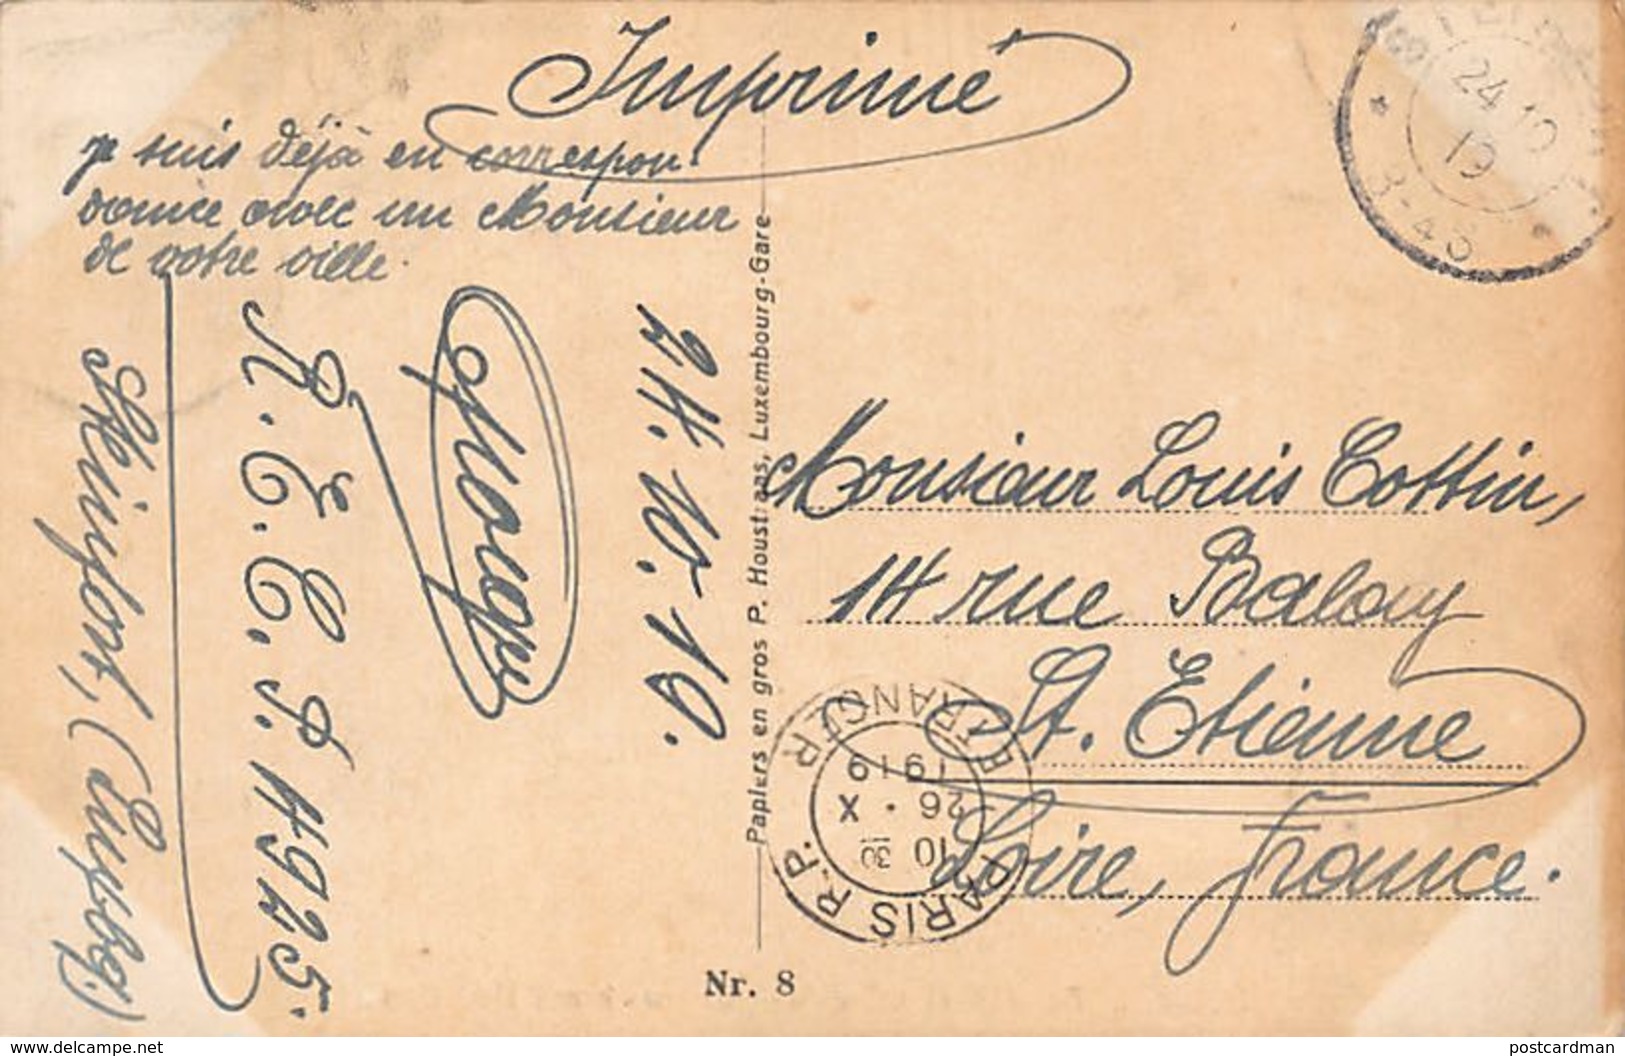 Imprimé
je suis déjà en correspon-
dance avec un Monsieur
de votre ville.
24.10.19.
A.E.C.P. 4925.
Steinfort, (Luxbg.)
Papiers en gros P. Houstraas, Luxembourg-Gare
Nr. 8
Monsieur Louis Cottin,
14 rue Balay
St. Etienne
Loire, France.
24 10
19
3-45
PARIS R.P.
ETRANGER
10 30
26 · X
1919
postcardman